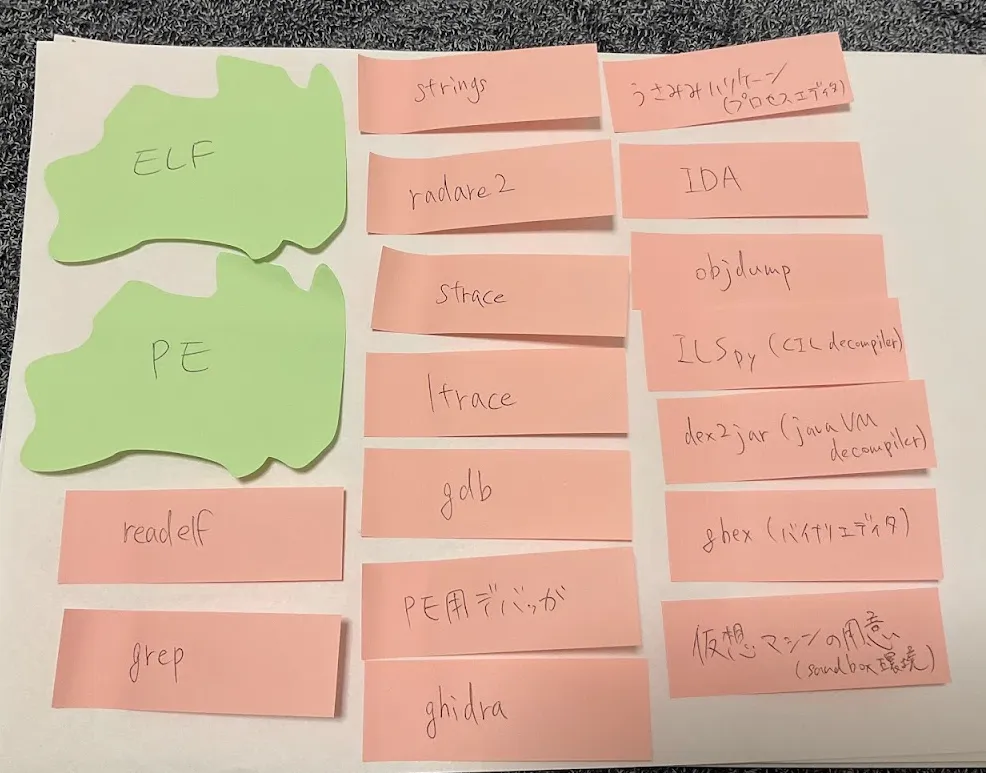 ELF
PE
readelf
grep
strings
radare2
strace
ltrace
gdb
PE用デバッガ
ghidra
うさみみハリケーン
(プロセスエディタ)
IDA
objdump
ILSpy (CIL decompiler)
dex2jar (java VM
decompiler)
gbex (バイナリエディタ)
仮想マシンの用意
(sandbox環境)